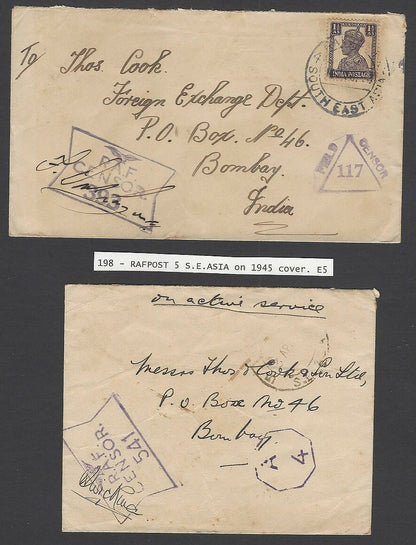 To
Thos. Cook.
Foreign Exchange Dept.
P.O. Box No 46.
Bombay.
India
INDIA POSTAGE
SOUTH EAST ASIA
R.A.F.
CENSOR.
393
FIELD CENSOR
117
198 - RAFPOST 5 S.E.ASIA on 1945 cover. E5
on active service
Messrs Thos Cook & Son Ltd,
P.O. Box No 46
Bombay
R.A.F
CENSOR.
541
A
4